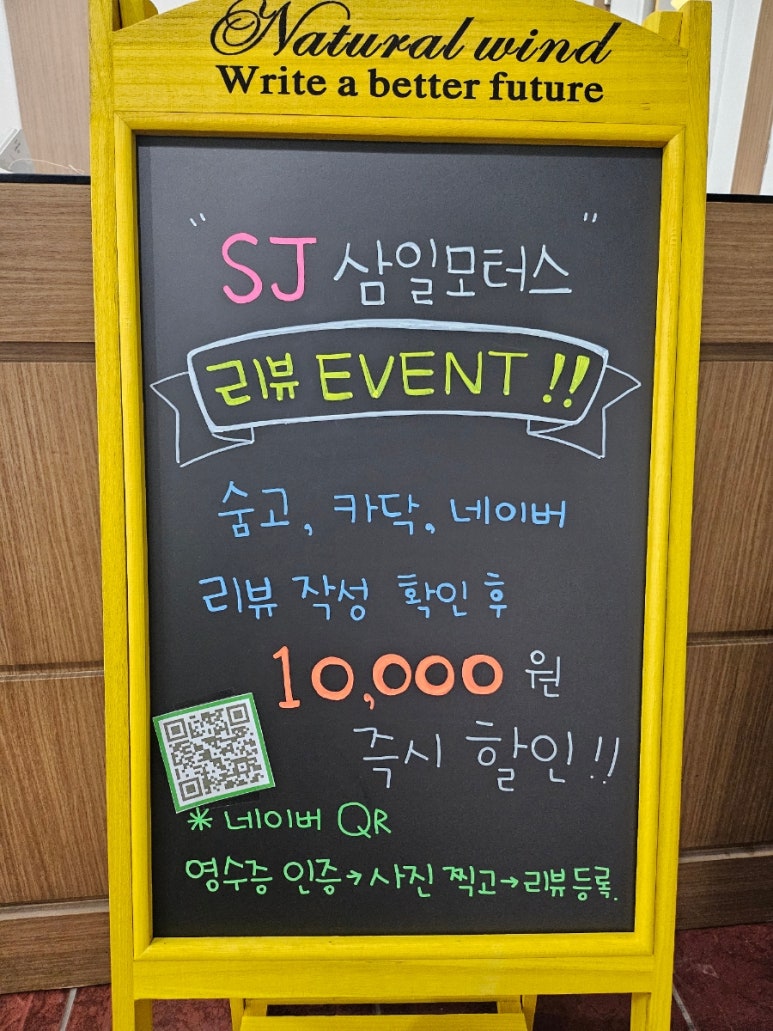 Natural wind
Write a better future
" SJ 삼일모터스 "
리뷰 EVENT !!
숨고, 카닥, 네이버
리뷰 작성 확인 후
10,000 원
즉시 할인 !!
* 네이버 QR
영수증 인증→사진 찍고→리뷰등록.